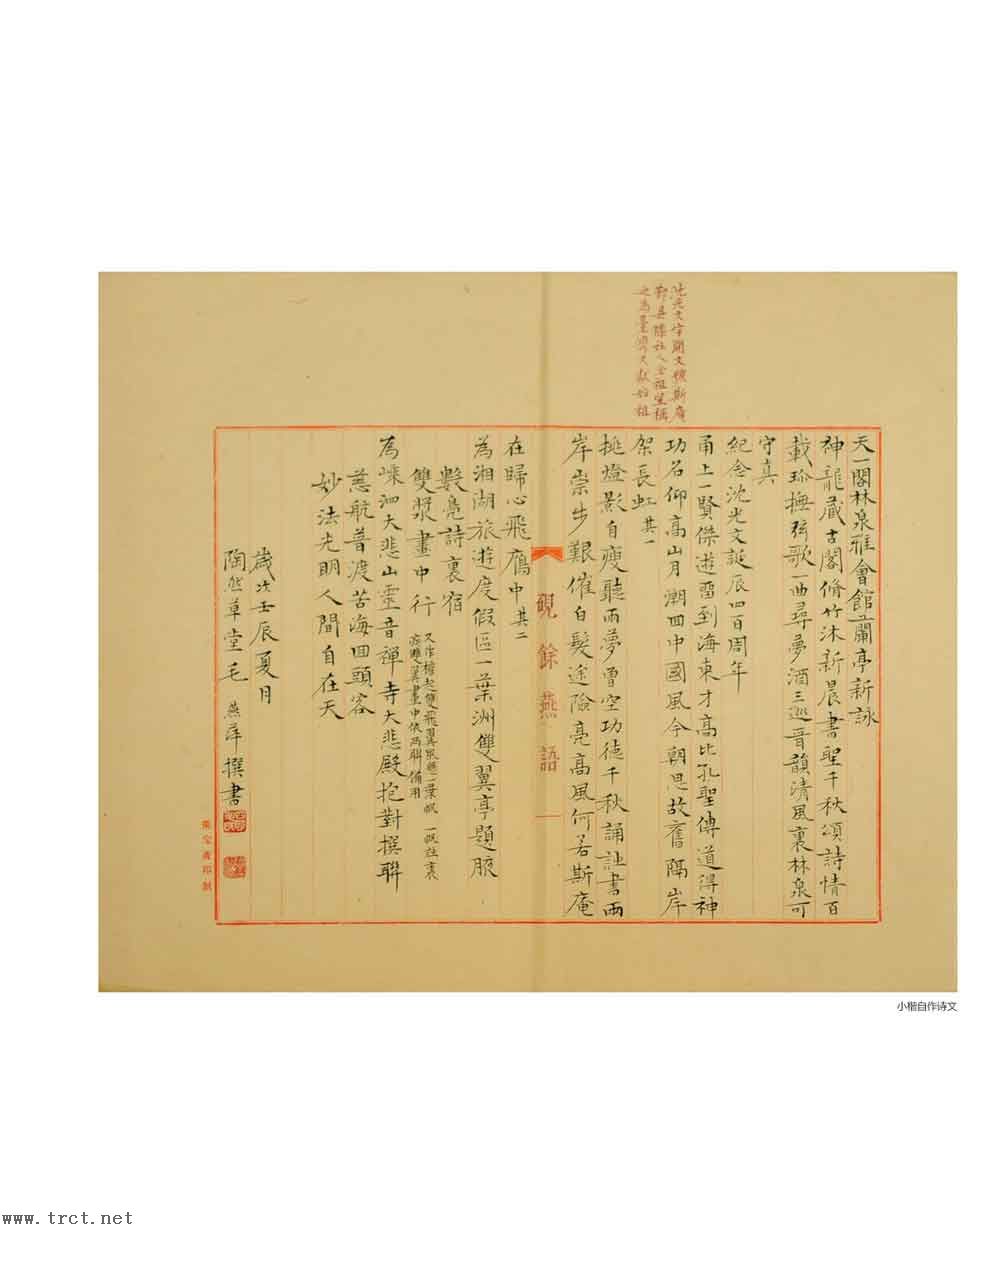 沈光文字開文號斯庵
鄞縣櫟社人全祖望稱
之為臺灣文獻始祖
天一閣林泉雅會館蘭亭新詠
神龍藏古閣脩竹沐新晨書聖千秋頌詩情百
載珍撫弦歌一曲尋夢酒三巡晉韻清風裏林泉可
守真
紀念沈光文誕辰四百周年
甬上一賢傑遊雷到海東才高比孔聖傳道得神
功名仰高山月潮回中國風今朝思故舊隔岸
架長虹 其一
挑燈影自瘦聽雨夢曾空功徒千秋誦詩書兩
岸崇步艱催白髮途險亮高風何若斯庵
在歸心飛鴈中 其二
硯餘燕語 一
為湘湖旅遊度假區一葉洲雙翼亭題聯
數亮詩裏宿
雙槳畫中行
為嵊泗大悲山靈音禪寺大悲殿抱對撰聯
慈航普渡苦海回頭客
妙法光明人間自在天
歲次壬辰夏月
陶然草堂毛燕萍撰書
榮寶齋印製
小楷自作诗文
www.trct.net